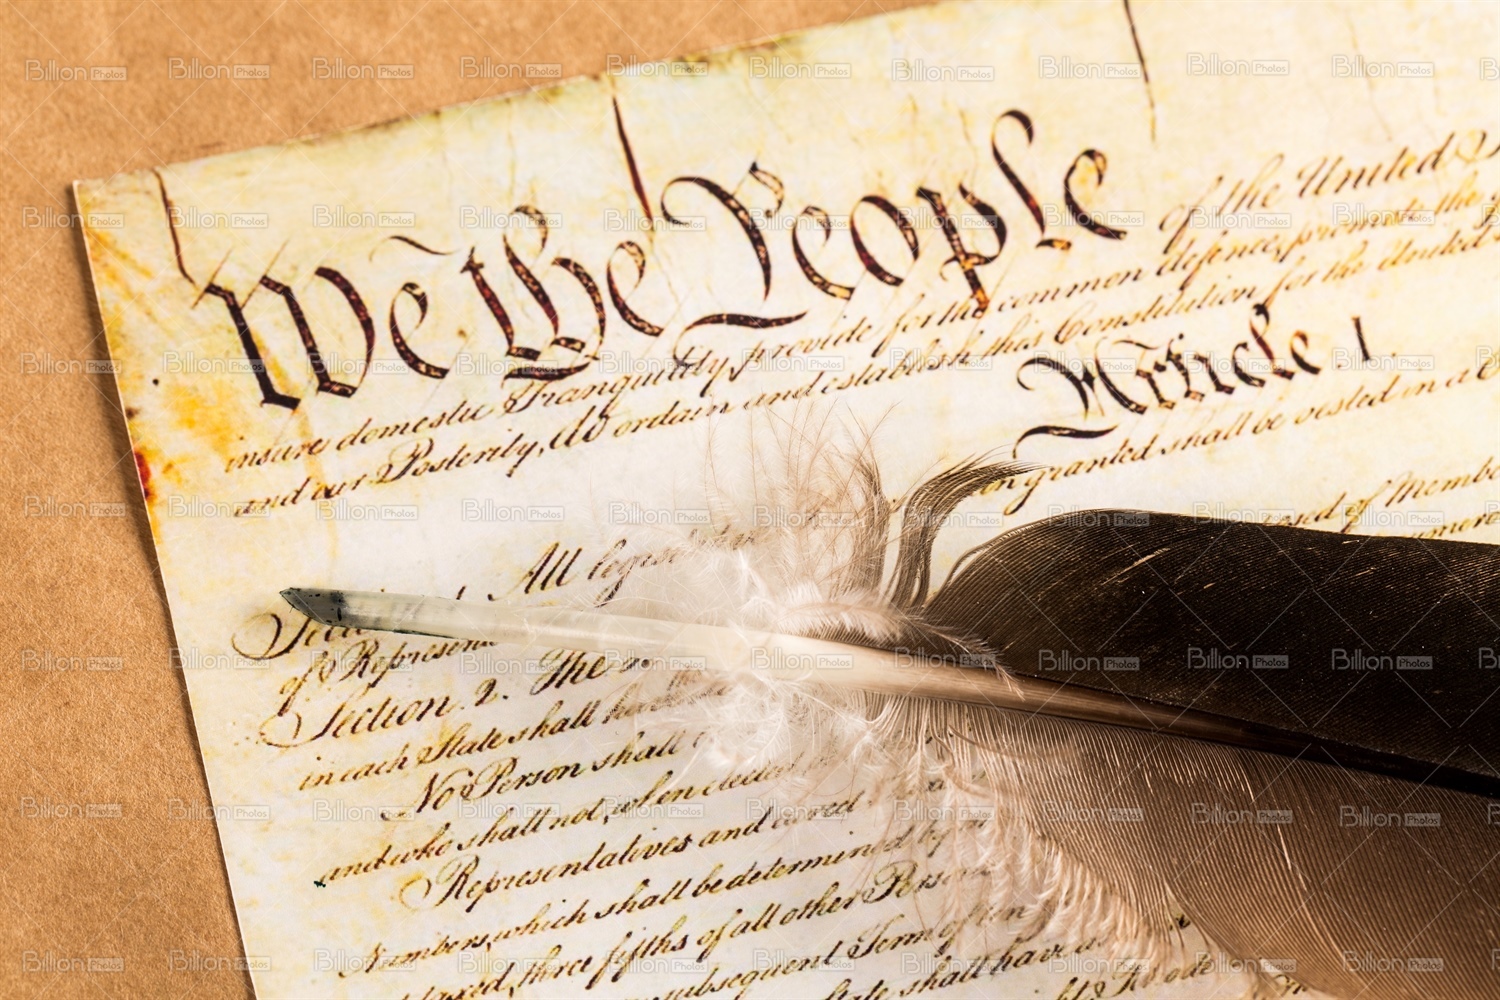 We the People of the United
insure domestic Tranquility, provide for the common defence, promote the
and our Posterity, do ordain and establish this Constitution for the United
Article I.
granted shall be vested in a
Section All
of Represen
Section. 2. The
in each State shall
No Person shall
and who shall not, when elected
Representatives and direct
Numbers, which shall be determined by
taxed, three fifths of all other Persons
subsequent Term of ten
State shall have
Billion Photos